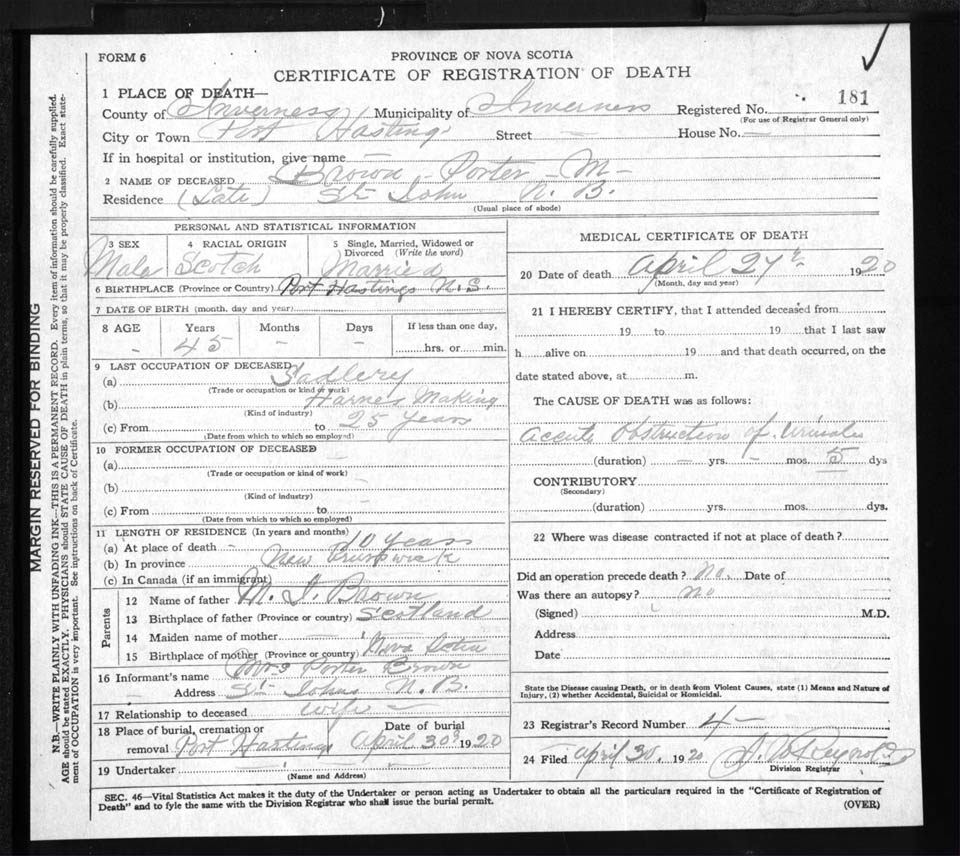 FORM 6
PROVINCE OF NOVA SCOTIA
CERTIFICATE OF REGISTRATION OF DEATH
1 PLACE OF DEATH—
County of Inverness Municipality of Inverness Registered No. 181
(For use of Registrar General only)
City or Town Port Hastings Street — House No. —
If in hospital or institution, give name —
2 NAME OF DECEASED Brown - Porter - M -
Residence (Late) St John N. B.
(Usual place of abode)
PERSONAL AND STATISTICAL INFORMATION
3 SEX 4 RACIAL ORIGIN 5 Single, Married, Widowed or Divorced (Write the word)
Male Scotch Married
6 BIRTHPLACE (Province or Country) Port Hastings N.S.
7 DATE OF BIRTH (month, day and year)
8 AGE Years Months Days If less than one day,
- 45 - - hrs. or min.
9 LAST OCCUPATION OF DECEASED
(a) Sadlery
(Trade or occupation or kind of work)
(b) Harness Making
(Kind of industry)
(c) From to 25 years
(Date from which to which so employed)
10 FORMER OCCUPATION OF DECEASED
(a) -
(Trade or occupation or kind of work)
(b) -
(Kind of industry)
(c) From to -
(Date from which to which so employed)
11 LENGTH OF RESIDENCE (In years and months)
(a) At place of death - 10 years
(b) In province New Brunswick
(c) In Canada (if an immigrant)
Parents
12 Name of father M. J. Brown
13 Birthplace of father (Province or country) Scotland
14 Maiden name of mother —
15 Birthplace of mother (Province or country) Nova Scotia
16 Informant's name Mrs Porter Brown
Address St Johns N. B.
17 Relationship to deceased wife
18 Place of burial, cremation or removal Port Hastings Date of burial April 30 1920
19 Undertaker —
(Name and Address)
MEDICAL CERTIFICATE OF DEATH
20 Date of death April 27th 1920
(Month, day and year)
21 I HEREBY CERTIFY, that I attended deceased from
19 to 19 that I last saw
h alive on 19 and that death occurred, on the
date stated above, at m.
The CAUSE OF DEATH was as follows:
Accute Obstruction of
(duration) — yrs. - mos. 5 dys
CONTRIBUTORY
(Secondary)
(duration) yrs. mos. dys.
22 Where was disease contracted if not at place of death?
Did an operation precede death? No. Date of
Was there an autopsy? no
(Signed) M.D.
Address
Date
State the Disease causing Death, or in death from Violent Causes, state (1) Means and Nature of
Injury, (2) whether Accidental, Suicidal or Homicidal.
23 Registrar's Record Number 4 -
24 Filed April 30, 1920 Reynolds
Division Registrar
SEC. 46—Vital Statistics Act makes it the duty of the Undertaker or person acting as Undertaker to obtain all the particulars required in the "Certificate of Registration of
Death" and to fyle the same with the Division Registrar who shall issue the burial permit.
(OVER)
MARGIN RESERVED FOR BINDING
N.B.—WRITE PLAINLY WITH UNFADING INK—THIS IS A PERMANENT RECORD. Every item of information should be carefully supplied.
AGE should be stated EXACTLY. PHYSICIANS should STATE CAUSE OF DEATH in plain terms, so that it may be properly classified. Exact state-
ment of OCCUPATION is very important. See instructions on back of Certificate.